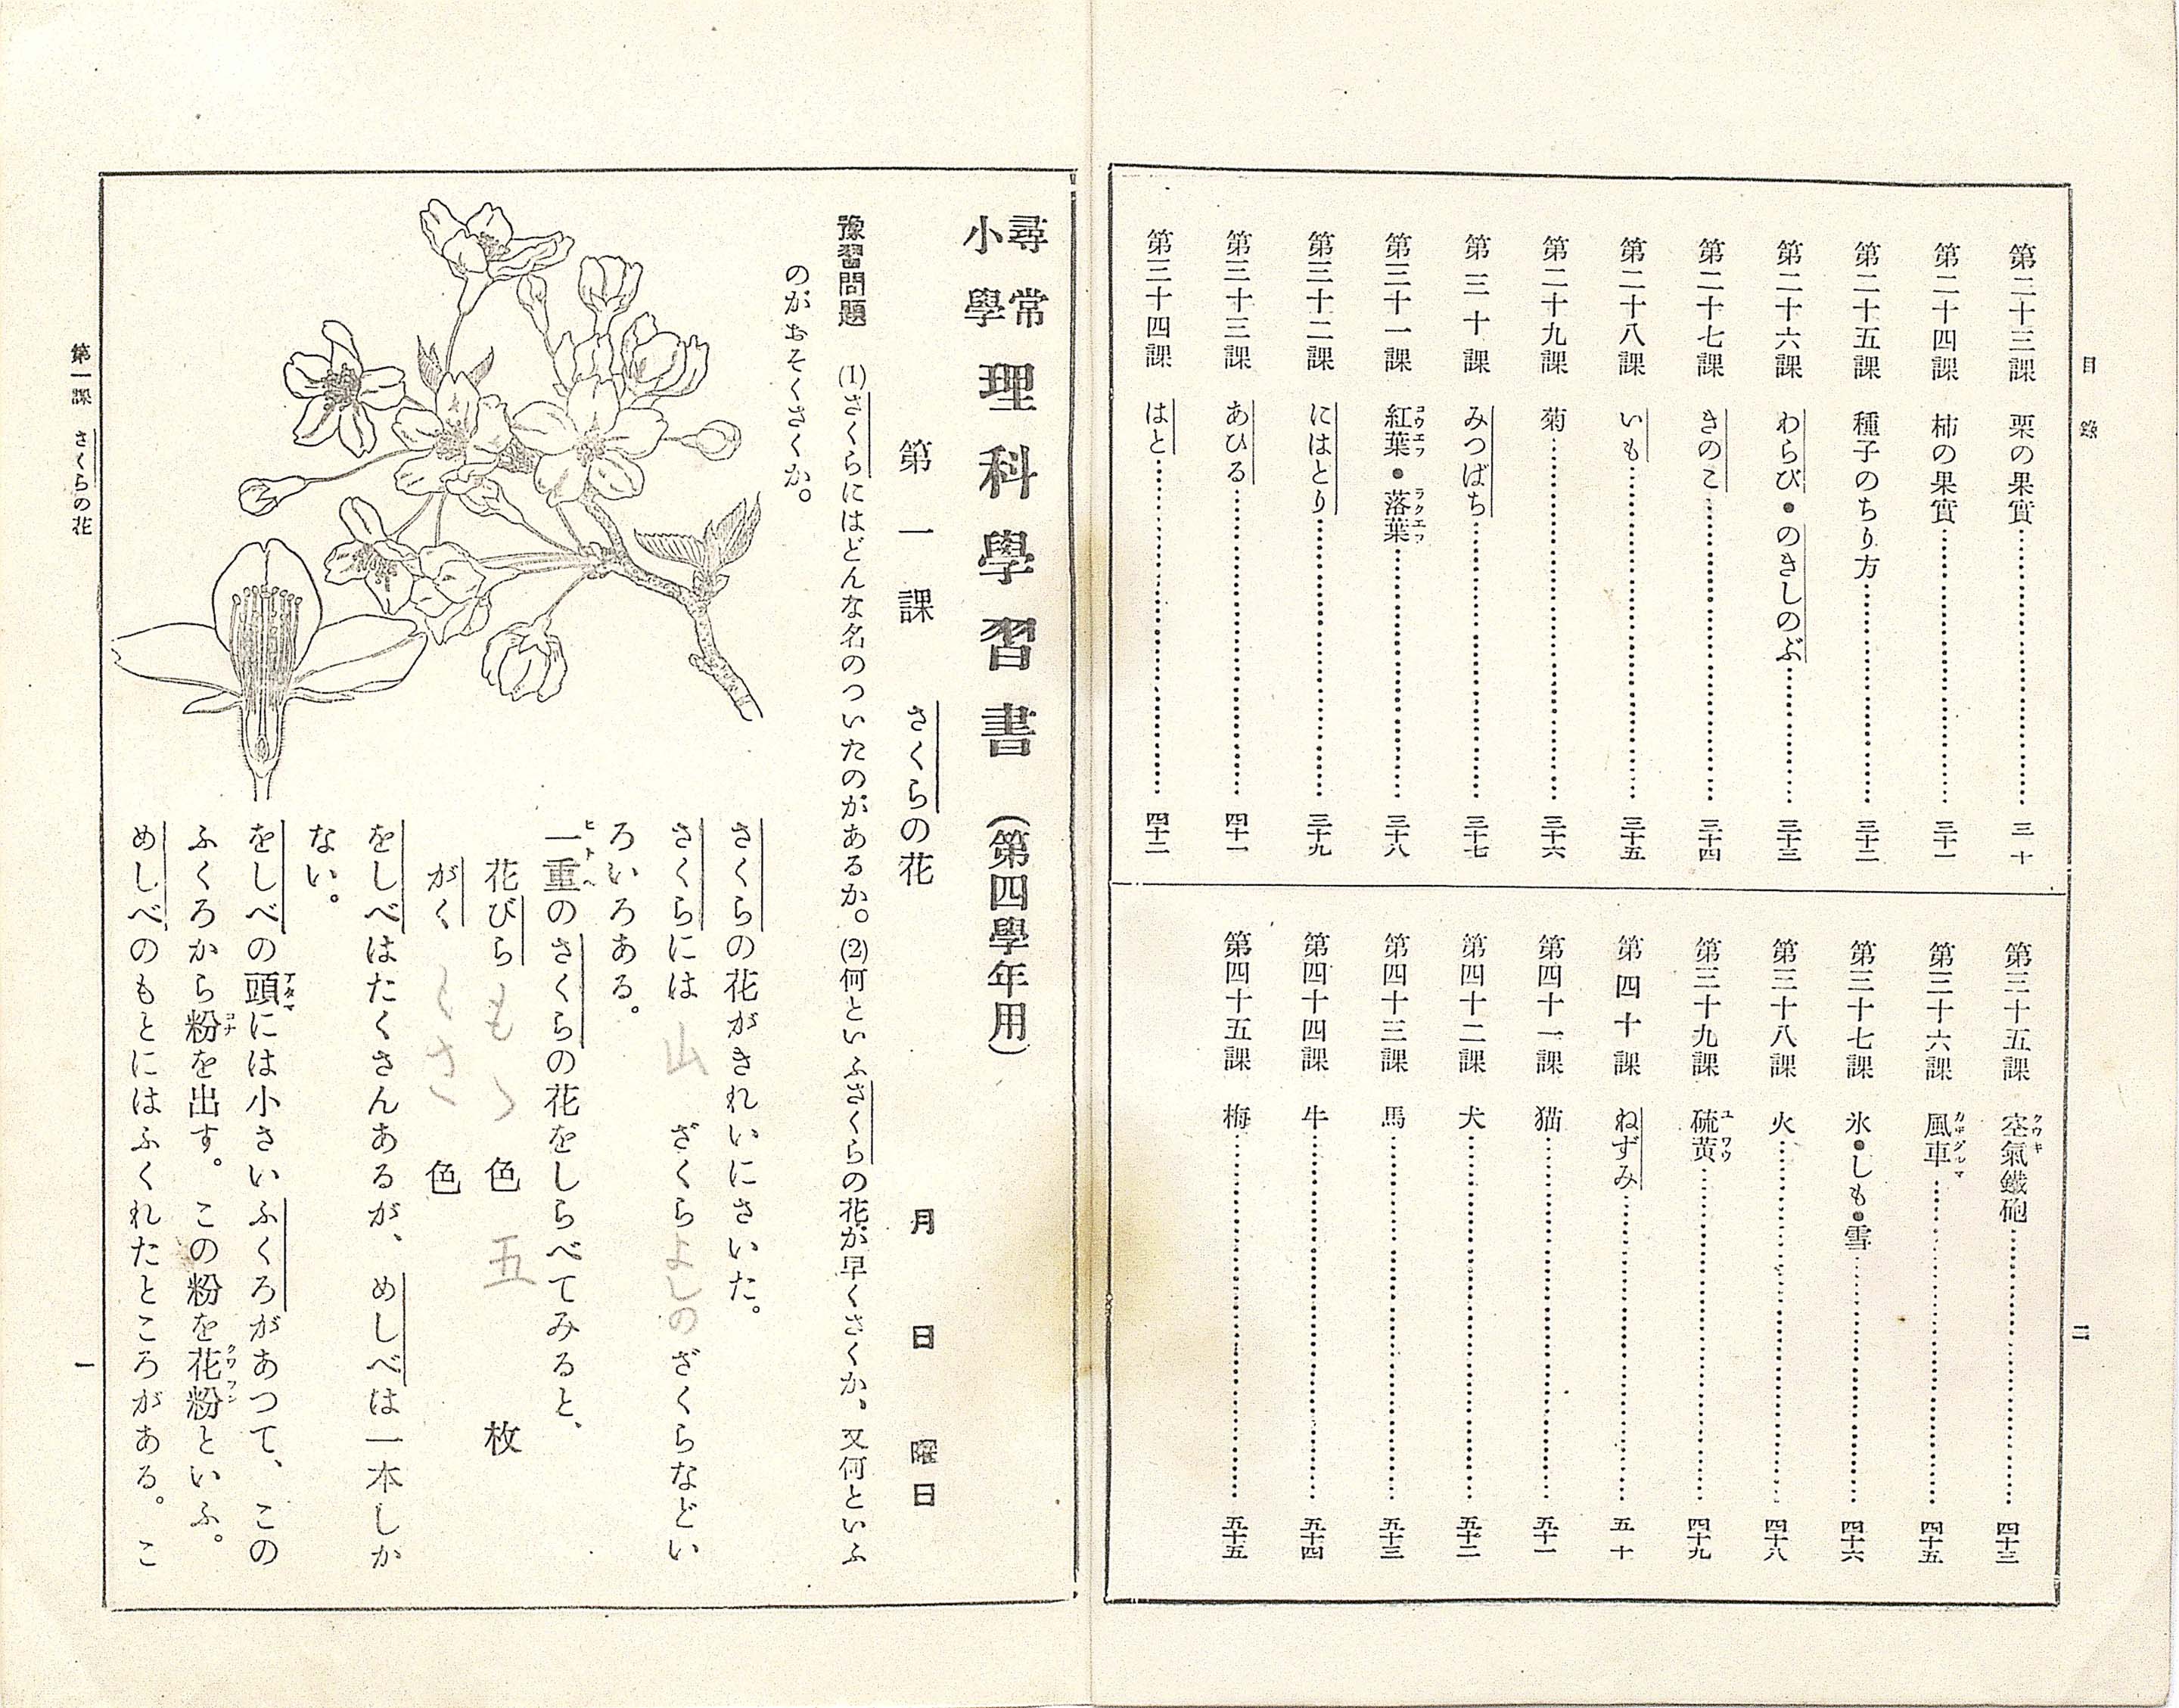 目錄
第二十三課 栗の果實……三十
第二十四課 柿の果實……三十一
第二十五課 種子のちり方……三十二
第二十六課 わらび・のきしのぶ……三十三
第二十七課 きのこ……三十四
第二十八課 いも……三十五
第二十九課 菊……三十六
第三十課 みつばち……三十七
第三十一課 紅葉・落葉……三十八
コウエフ ラクエフ
第三十二課 にはとり……三十九
第三十三課 あひる……四十一
第三十四課 はと……四十二
第三十五課 空氣鐵砲……四十三
クウキ
第三十六課 風車……四十五
カザグルマ
第三十七課 氷・しも・雪……四十六
第三十八課 火……四十八
第三十九課 硫黄……四十九
ユワウ
第四十課 ねずみ……五十
第四十一課 猫……五十一
第四十二課 犬……五十二
第四十三課 馬……五十三
第四十四課 牛……五十四
第四十五課 梅……五十五
二
尋常小學 理科學習書 (第四學年用)
第一課 さくらの花 月 日 曜日
豫習問題 (1)さくらにはどんな名のついたのがあるか。(2)何といふさくらの花が早くさくか。又何といふ
のがおそくさくか。
さくらの花がきれいにさいた。
さくらには 山 ざくらよしのざくらなどい
ろいろある。
一重のさくらの花をしらべてみると、
ヒトヘ
花びら もゝ 色 五 枚
がく くさ 色
をしべはたくさんあるが、めしべは一本しか
ない。
をしべの頭には小さいふくろがあつて、この
アタマ
ふくろから粉を出す。この粉を花粉といふ。
コナ クワフン
めしべのもとにはふくれたところがある。こ
第一課 さくらの花
一